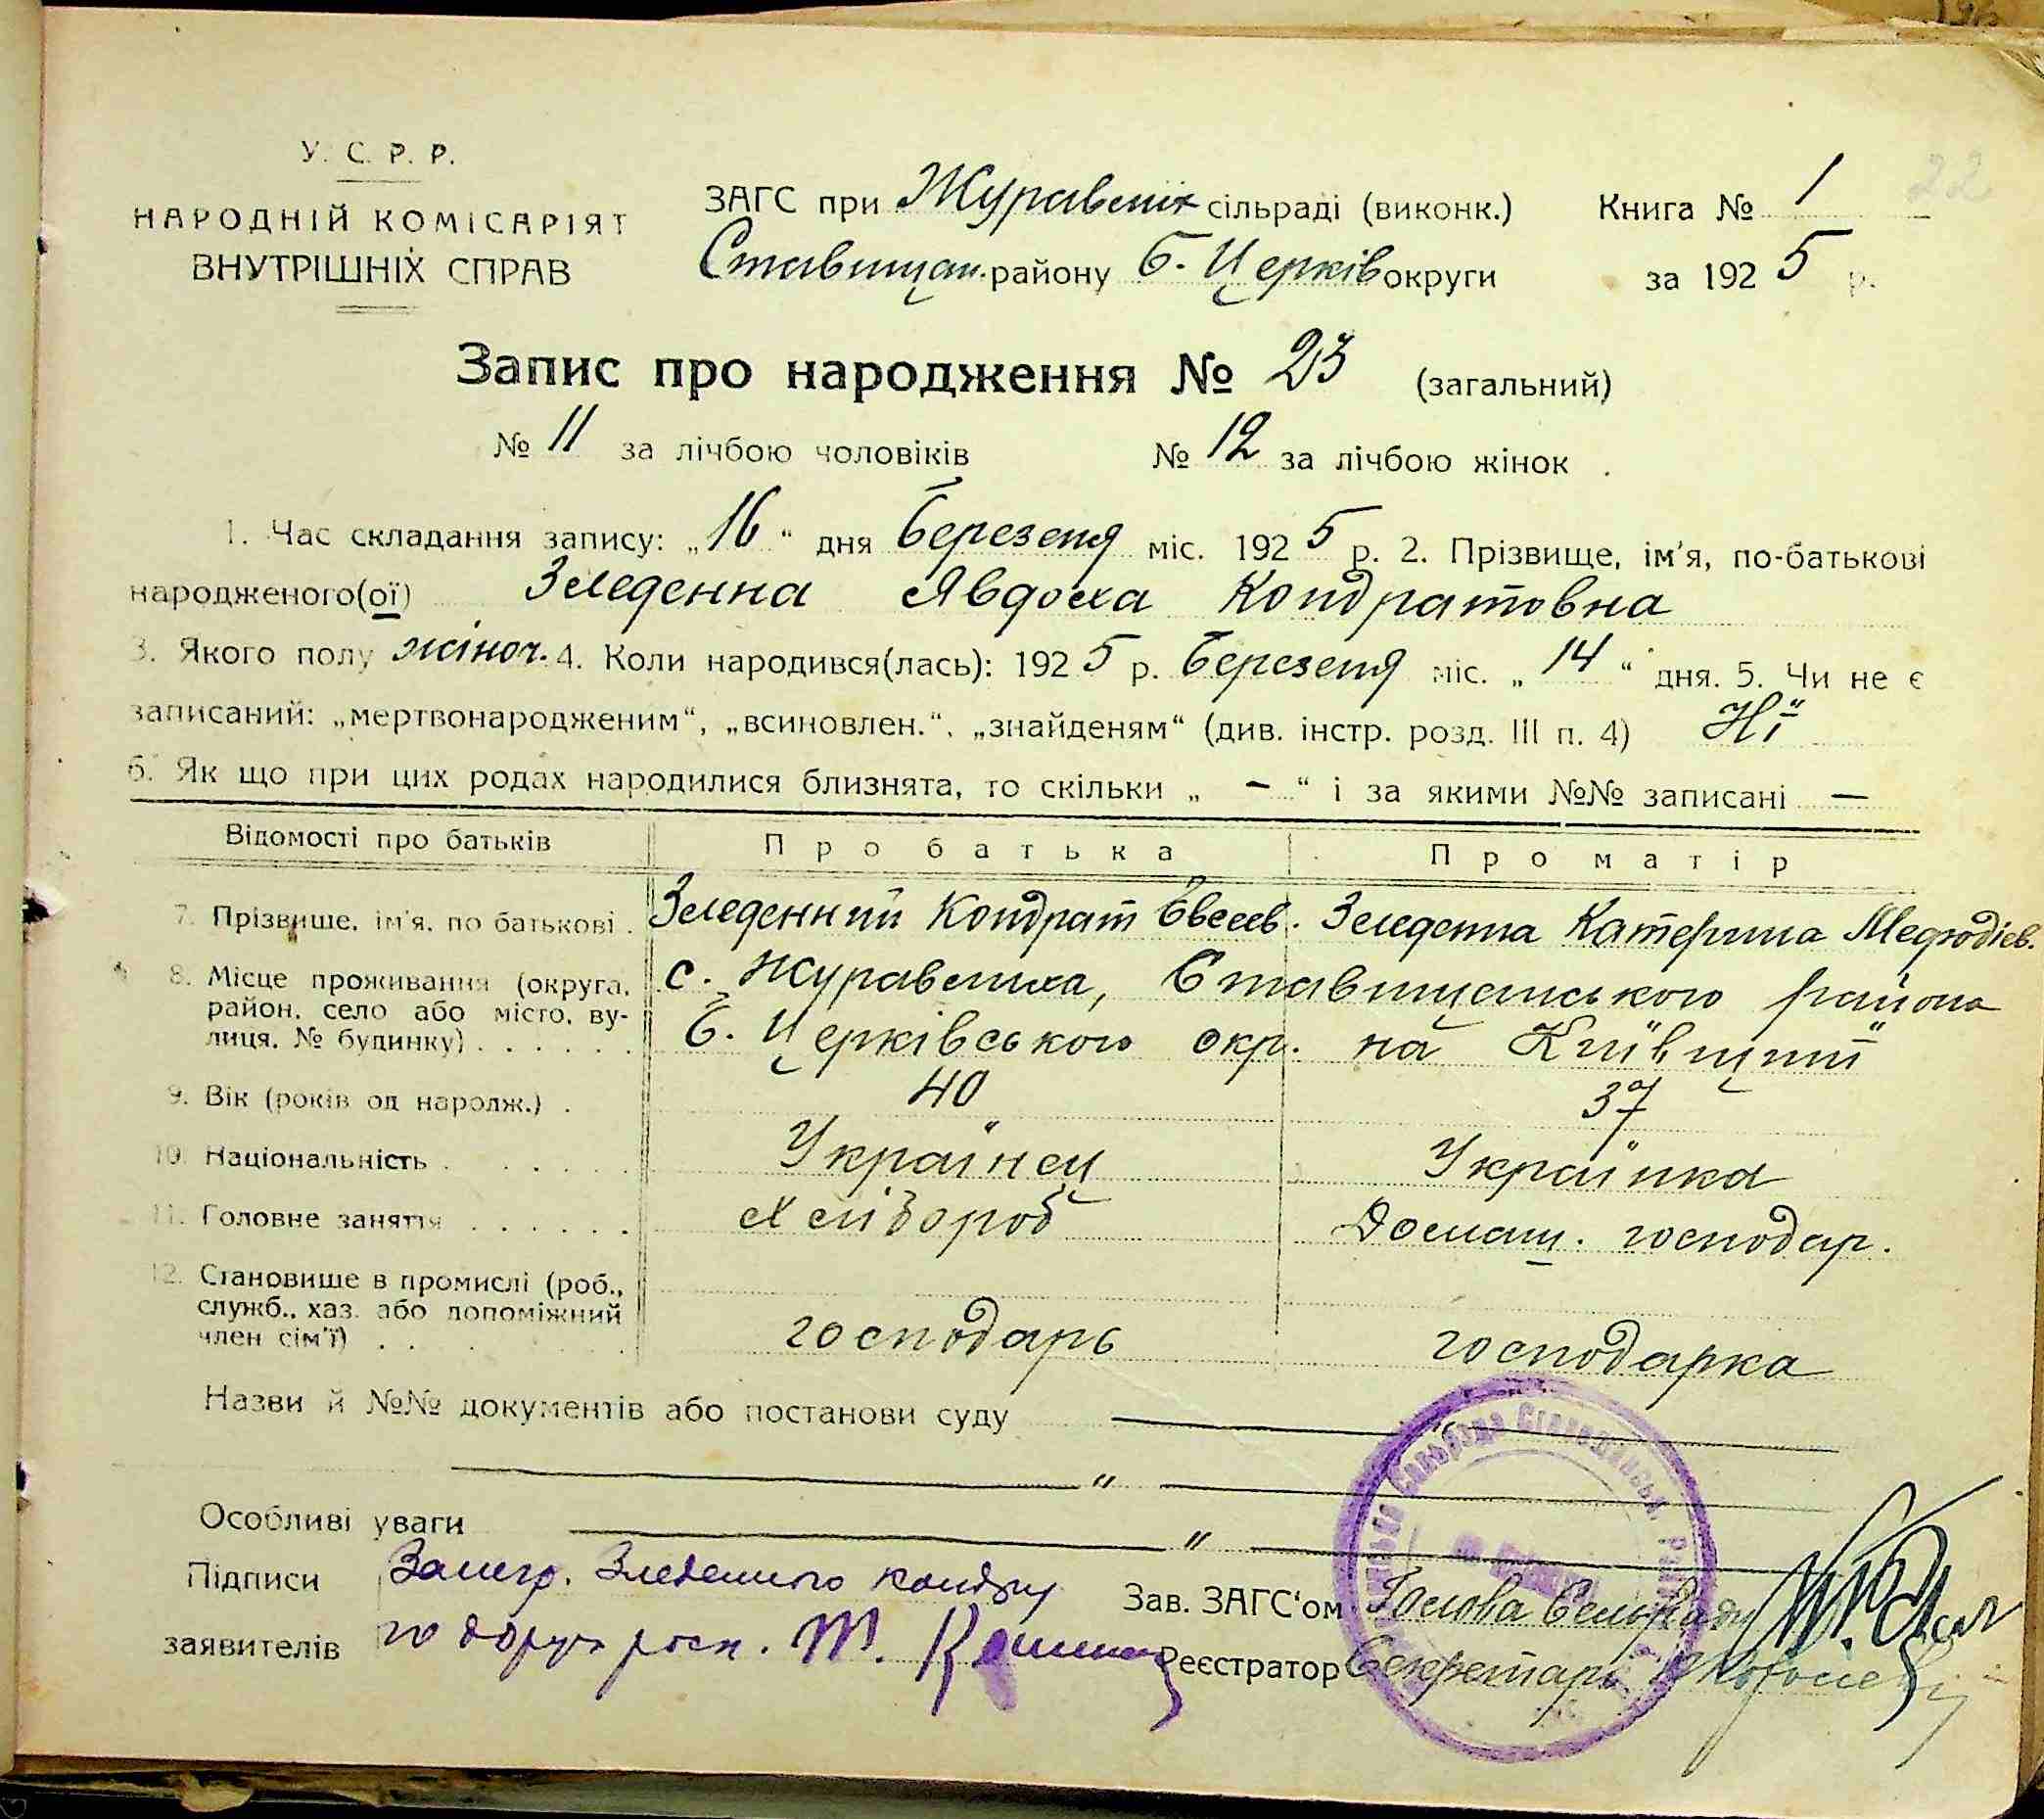 У. С. Р. Р.
НАРОДНІЙ КОМІСАРІЯТ
ВНУТРІШНІХ СПРАВ
ЗАГС при Журавлих сільраді (виконк.) Книга № 1 22
Ставищан. району Б. Церків округи за 1925 р.
Запис про народження № 23 (загальний)
№ 11 за лічбою чоловіків № 12 за лічбою жінок
1. Час складання запису: „16“ дня Березеня міс. 1925 р. 2. Прізвище, ім'я, по-батькові
народженого(ої) Зледенна Явдоха Кондратовна
3. Якого полу жіноч. 4. Коли народився(лась): 1925 р. Березеня міс. „14“ дня. 5. Чи не є
записаний: „мертвонародженим“, „всиновлен.“, „знайденям“ (див. інстр. розд. III п. 4) Ні
6. Як що при цих родах народилися близнята, то скільки „ — “ і за якими №№ записані —
Відомості про батьків Про батька Про матір
7. Прізвище, ім'я, по батькові . Зледенний Кондрат Євсеєв. Зледенна Катерина Мефодієв.
8. Місце проживання (округа, с. Журавлиха, Ставищанського района
район, село або місто, ву-
лиця, № будинку) . . . . . . Б. Церківського окр. на Київщині
9. Вік (років од народж.) . 40 37
10. Національність . . . . . . Українец Українка
11. Головне заняття . . . . . . Хлібороб Домашн. господар.
12. Становище в промислі (роб.,
служб., хаз. або допоміжний
член сім'ї) . . господарь господарка
Назви й №№ документів або постанови суду —
— „ —
Особливі уваги — „ —
Підписи Зледенного Зав. ЗАГС'ом Голова Сельради
заявителів Реєстратор Секретарь